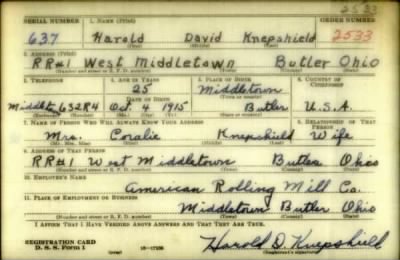 2533
SERIAL NUMBER 1. NAME (Print) ORDER NUMBER
637 Harold David Knepshield 2533
(First) (Middle) (Last)
2. ADDRESS (Print)
RR#1 West Middletown Butler Ohio
(Number and street or R. F. D. number) (Town) (County) (State)
3. TELEPHONE 4. AGE IN YEARS 5. PLACE OF BIRTH 6. COUNTRY OF CITIZENSHIP
25 Middletown
DATE OF BIRTH (Town or county)
Middltn 632R4 Oct 4 1915 Butler U.S.A.
(Exchange) (Number) (Mo.) (Day) (Yr.) (State or country)
7. NAME OF PERSON WHO WILL ALWAYS KNOW YOUR ADDRESS 8. RELATIONSHIP OF THAT PERSON
Mrs. Coralie Knepshield Wife
(Mr., Mrs., Miss) (First) (Middle) (Last)
9. ADDRESS OF THAT PERSON
RR#1 West Middletown Butler Ohio
(Number and street or R. F. D. number) (Town) (County) (State)
10. EMPLOYER'S NAME
American Rolling Mill Co.
11. PLACE OF EMPLOYMENT OR BUSINESS
Middletown Butler Ohio
(Number and street or R. F. D. number) (Town) (County) (State)
I AFFIRM THAT I HAVE VERIFIED ABOVE ANSWERS AND THAT THEY ARE TRUE.
REGISTRATION CARD
D. S. S. Form 1 16-17105 Harold D. Knepshield
(Registrant's signature)